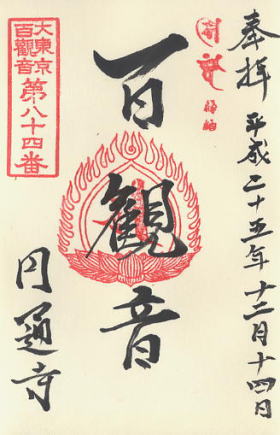 奉拝 平成二十五年十二月十四日
百観音
円通寺
大東京
百觀音
第八十四番